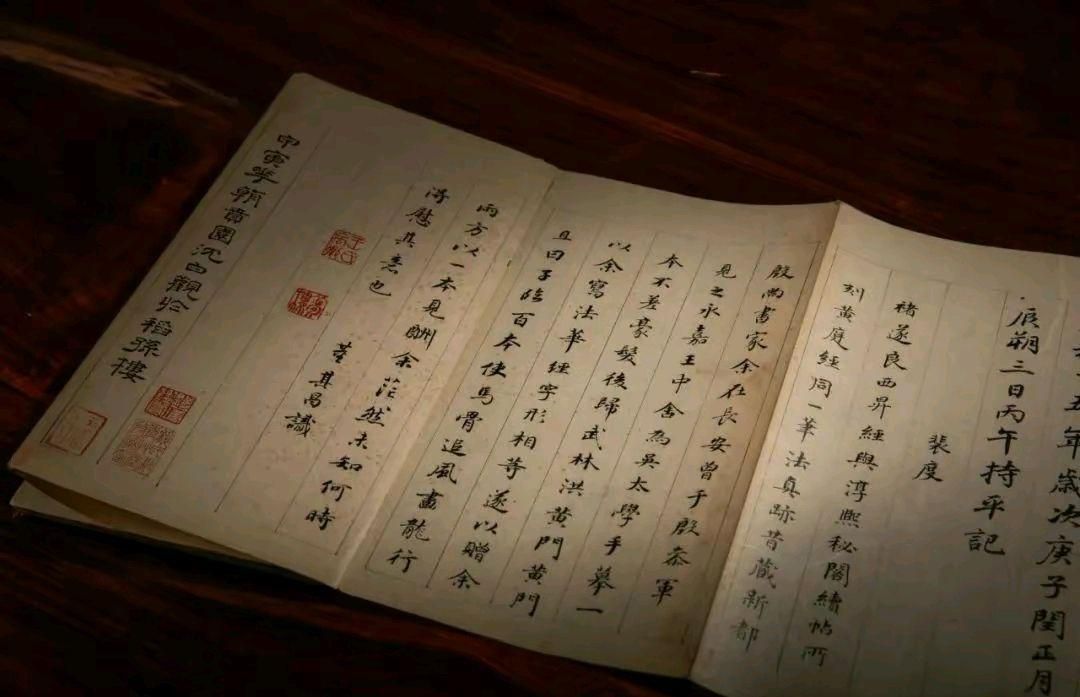 五年歲次庚子閏正月
辰朔三日丙午持平記
裴度
褚遂良西昇經與淳熙秘閣續帖所
刻黃庭經同一筆法真跡昔藏新都
殷尚書家余在長安曾于殷參軍
見之永嘉王中舍為吳太學手摹一
本不差豪髮後歸武林洪黃門黃門
以余寫法華經字形相等遂以贈余
且曰子臨百本使馬骨追風畫龍行
雨方以一本見酬余茫然未知何時
得慰其意也
董其昌識
甲寅華朝賁園沈白觀於稻孫樓